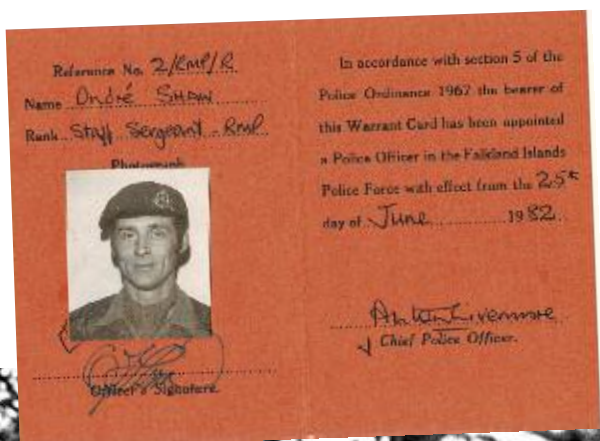 Reference No. 2/RMP/R
Name André SHAW
Rank Staff Sergeant - RMP
Photograph
Officer's Signature.
In accordance with section 5 of the
Police Ordinance 1967 the bearer of
this Warrant Card has been appointed
a Police Officer in the Falkland Islands
Police Force with effect from the 25th
day of June 1982
Chief Police Officer.